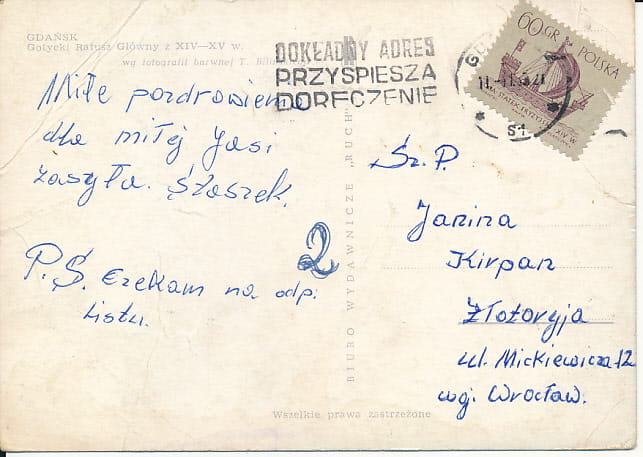 GDAŃSK
Gotycki Ratusz Główny z XIV—XV w.
wg fotografii barwnej T.
DOKŁADNY ADRES
PRZYSPIESZA
DORĘCZENIE
60 GR
POLSKA
XIV W.
Miłe pozdrowienia
dla miłej Jasi
zasyła. Staszek.
P.S. Czekam na odp:
listu.
2
BIURO WYDAWNICZE „RUCH"
Sz. P.
Janina
Kirpan
Złotoryja
ul. Mickiewicza 12
wg. Wrocław.
Wszelkie prawa zastrzeżone